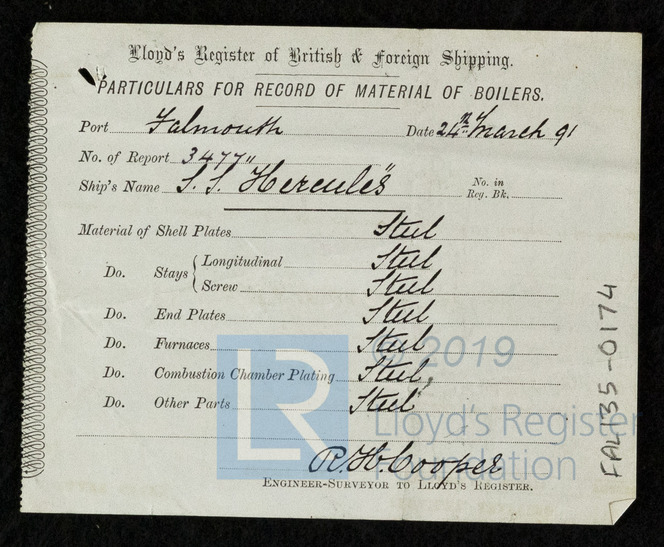 Lloyd's Register of British & Foreign Shipping.
PARTICULARS FOR RECORD OF MATERIAL OF BOILERS.
Port Falmouth Date 24th March 91
No. of Report 3477"
Ship's Name S.S. "Hercules" No. in Reg. Bk.
Material of Shell Plates Steel
Do. Stays { Longitudinal Steel
Screw Steel
Do. End Plates Steel
Do. Furnaces Steel
Do. Combustion Chamber Plating Steel,
Do. Other Parts Steel
R. H. Cooper
ENGINEER-SURVEYOR TO LLOYD'S REGISTER.
FAL135-0174
LR
© 2019
Lloyd's Register
Foundation